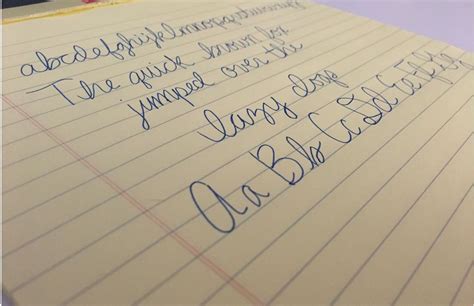 abcdefghijklmnopqrstuvwxyz
The quick brown fox
jumped over the
lazy dogs
Aa Bb Cc Dd Ee Ff Gg